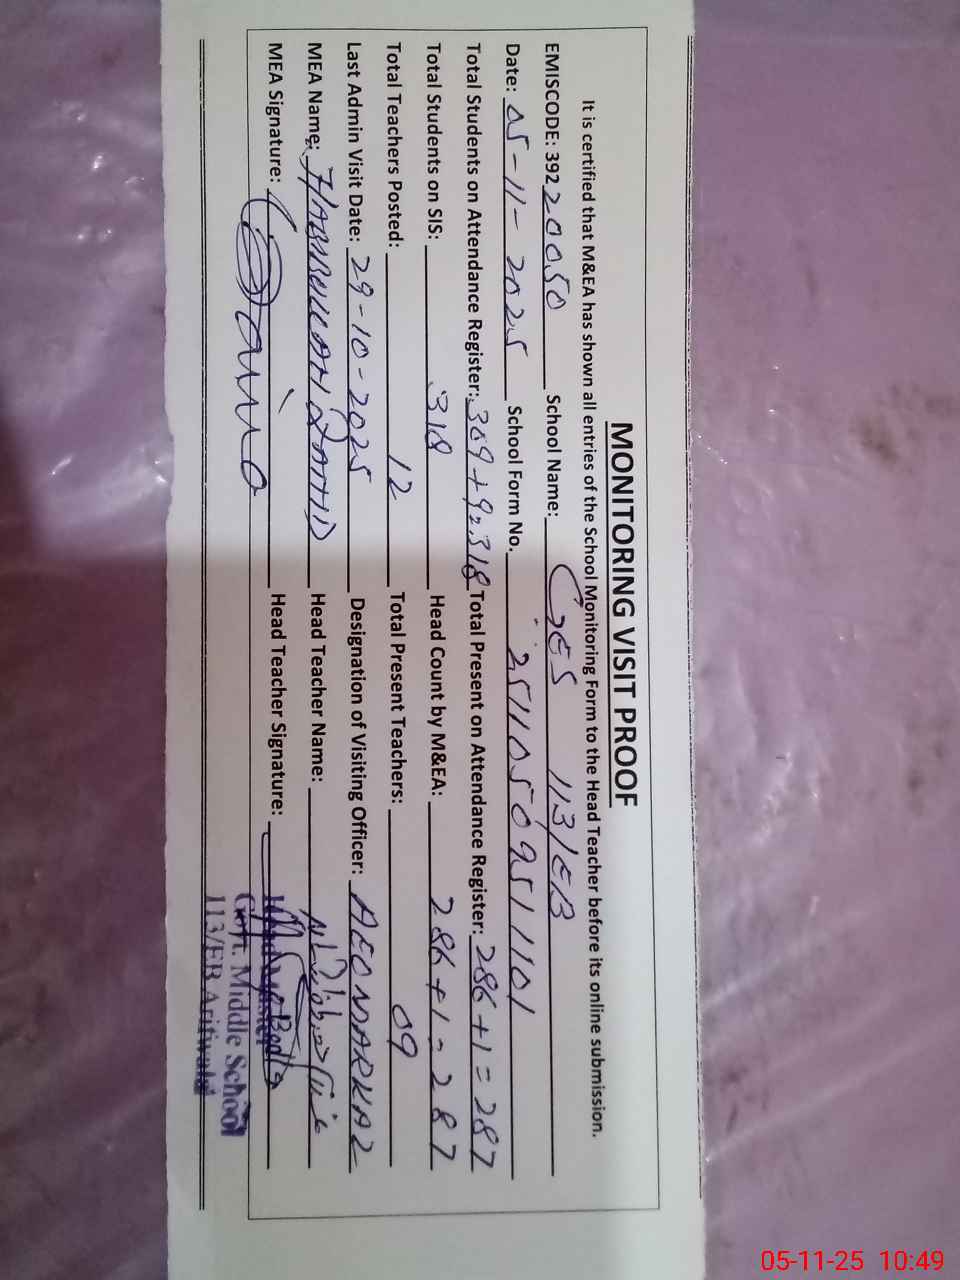 MONITORING VISIT PROOF
It is certified that M&EA has shown all entries of the School Monitoring Form to the Head Teacher before its online submission.
EMISCODE: 39220050 School Name: GES 113/EB
Date: 05-11-2025 School Form No. 2511050951101
Total Students on Attendance Register: 309+9=318 Total Present on Attendance Register: 286+1=287
Total Students on SIS: 318 Head Count by M&EA: 286+1=287
Total Teachers Posted: 12 Total Present Teachers: 09
Last Admin Visit Date: 29-10-2025 Designation of Visiting Officer: AEO MARKAZ
MEA Name: HABIBULLAH ZAHID Head Teacher Name:
MEA Signature: Head Teacher Signature:
Headmaster
Govt. Middle School
113/EB Arifwala
05-11-25 10:49